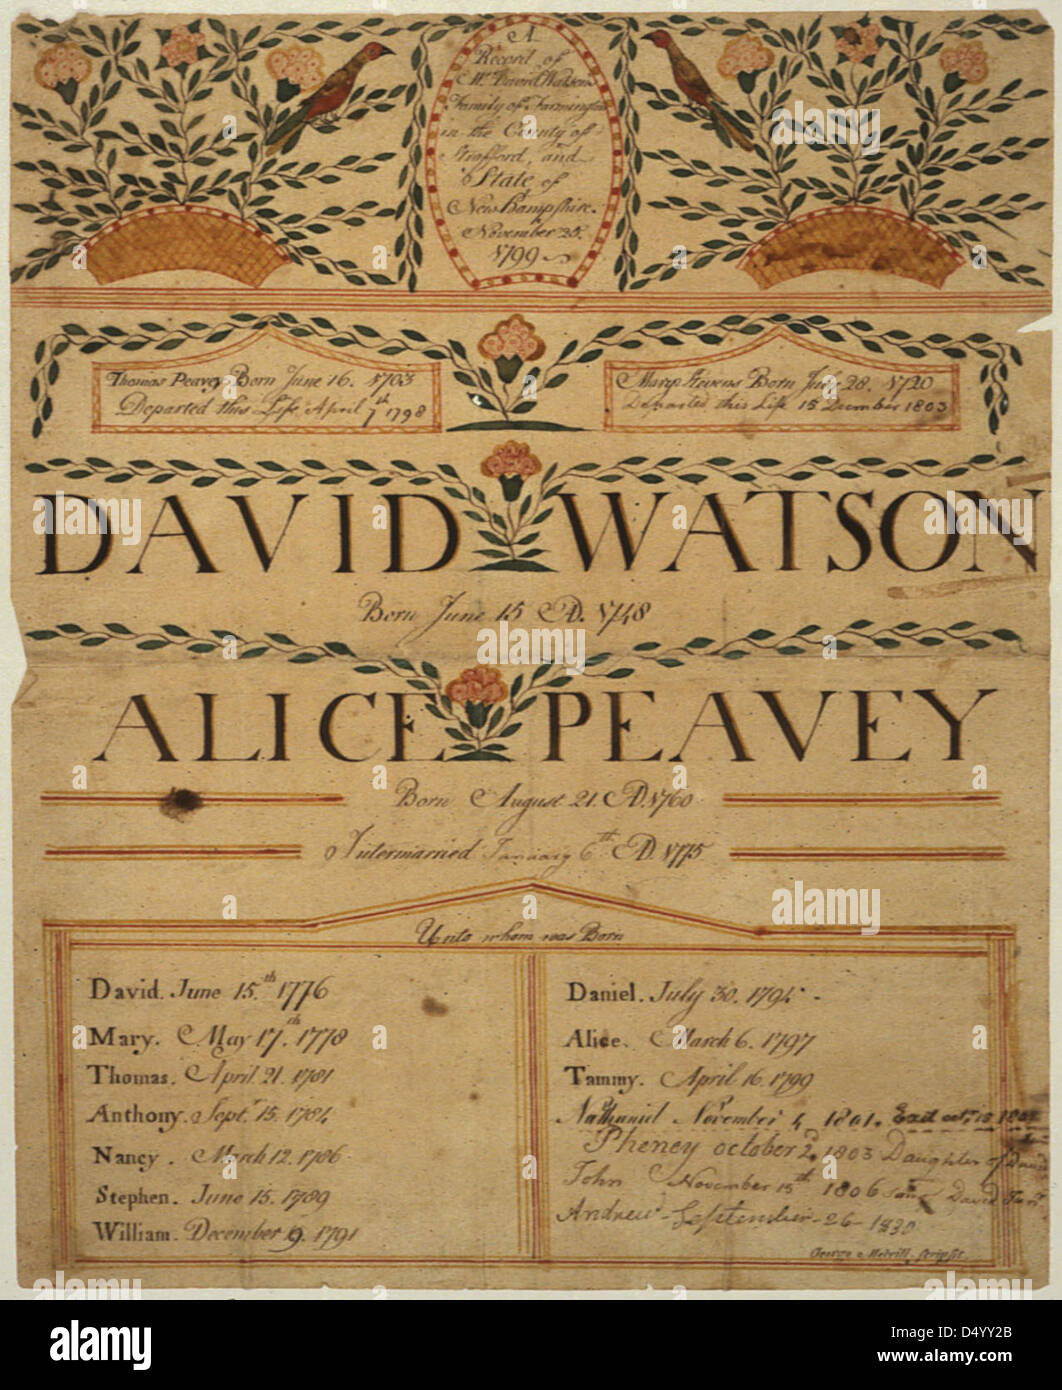 A
Record of
Mr David Watson's
Family of Farmington
in the County of
Strafford, and
State of
New Hampshire.
November 25.
1799
Thomas Peavey Born June 16. 1703
Departed this Life April 7th 1798
Mary Stevens Born July 28. 1720
Departed this Life 15 December 1803
DAVID WATSON
Born June 15 AD. 1748
ALICE PEAVEY
Born August 21. AD. 1760
Intermarried January 6th AD. 1775
Unto whom was Born
David. June 15.th 1776
Mary. May 17.th 1778
Thomas. April. 21. 1781
Anthony. Sept. 15. 1784
Nancy. March 12. 1786
Stephen. June 15. 1789
William. December 9. 1791
Daniel. July 30. 1794
Alice. March 6. 1797
Tammy. April 16. 1799
Nathaniel November 4 1801.
Pheney october 2d 1803 Daughter of David
John November 15th 1806 David
Andrew September 26 1830
George Merrill, scripsit.
alamy
Image ID: D4YY2B
www.alamy.com